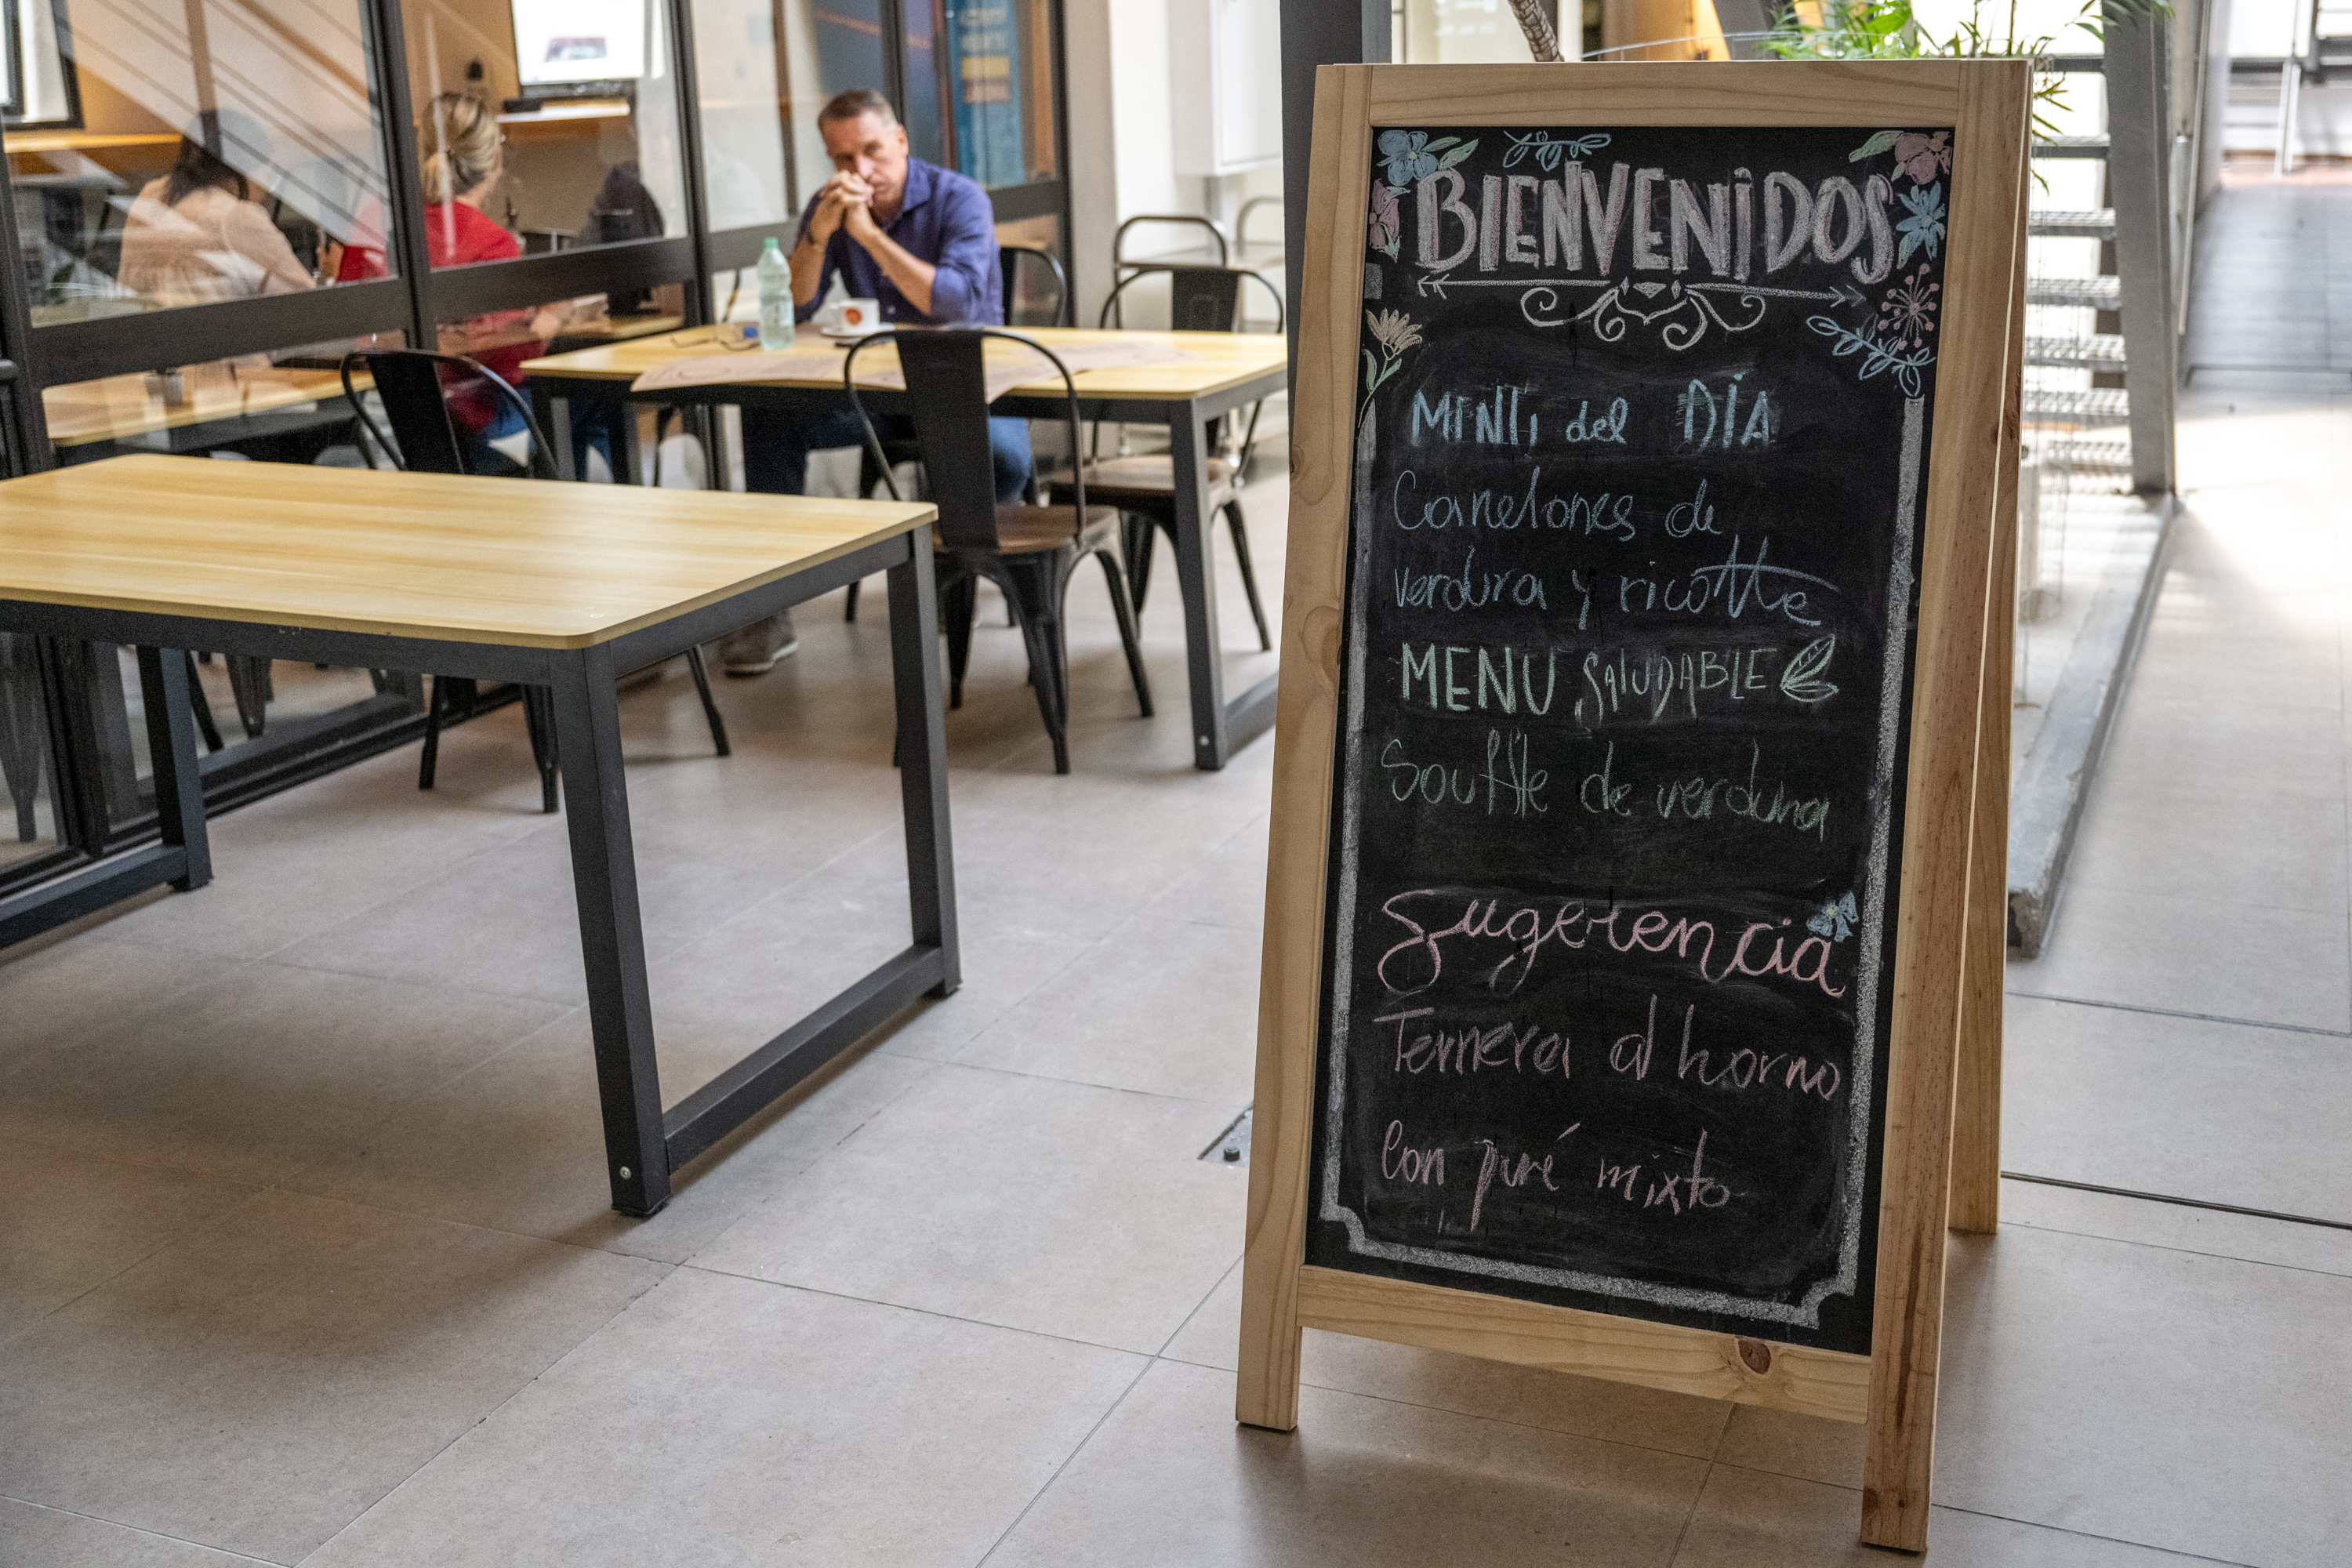 BIENVENIDOS
MENÚ del DÍA
Canelones de
verdura y ricotta
MENU SALUDABLE
Soufflé de verdura
Sugerencia
Ternera al horno
Con puré mixto